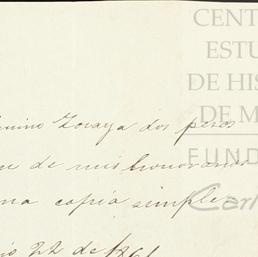 CENT
ESTU
DE HIS
DE M
FUND
Carl
Zozaya dos pesos
de mis honorarios
na copia simple
22 de 186